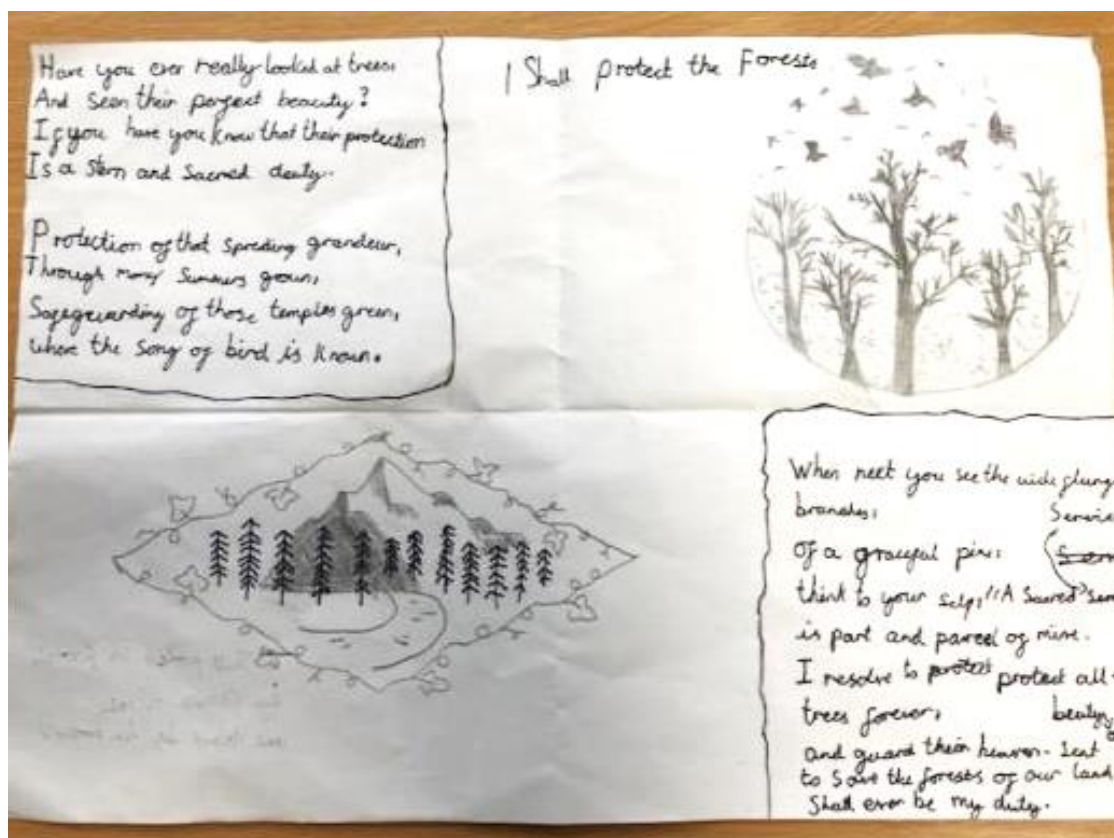 I Shall protect the Forests
Have you ever really looked at trees,
And seen their perfect beauty?
If you have you know that their protection
Is a stern and Sacred deuty.
Protection of that spreding grandeur,
Through many Summers grown,
Safeguarding of those temples green,
where the song of bird is known.
When next you see the wide flung
branches,
Service
of a graceful pine,
think to your self, "A Sacred
is part and parcel of mine.
I resolve to protect protect all
trees forever,
beauty
and guard their heaven-Sent
to Save the forests of our land
Shall ever be my duty.